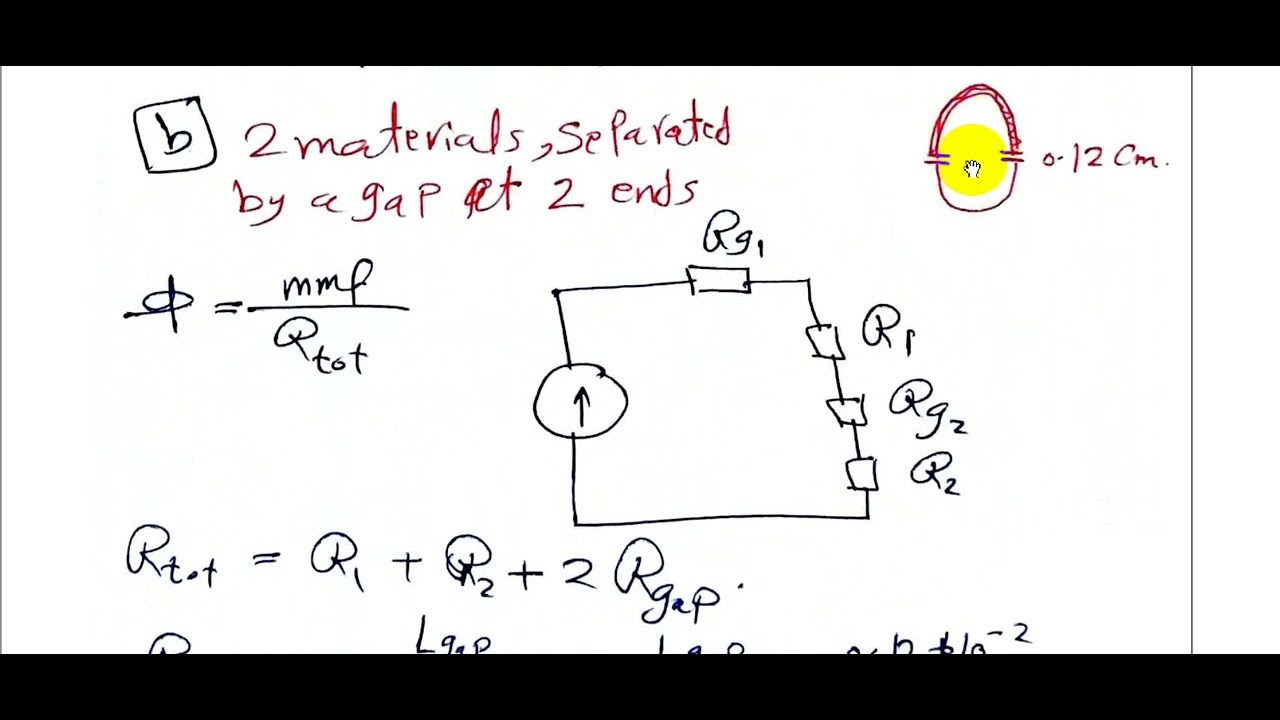 b
2 materials, separated
by a gap at 2 ends
0.12 Cm.
Φ = mmf
Rtot
Rg1
R1
Rg2
R2
Rtot = R1 + R2 + 2 Rgap.
Lgap